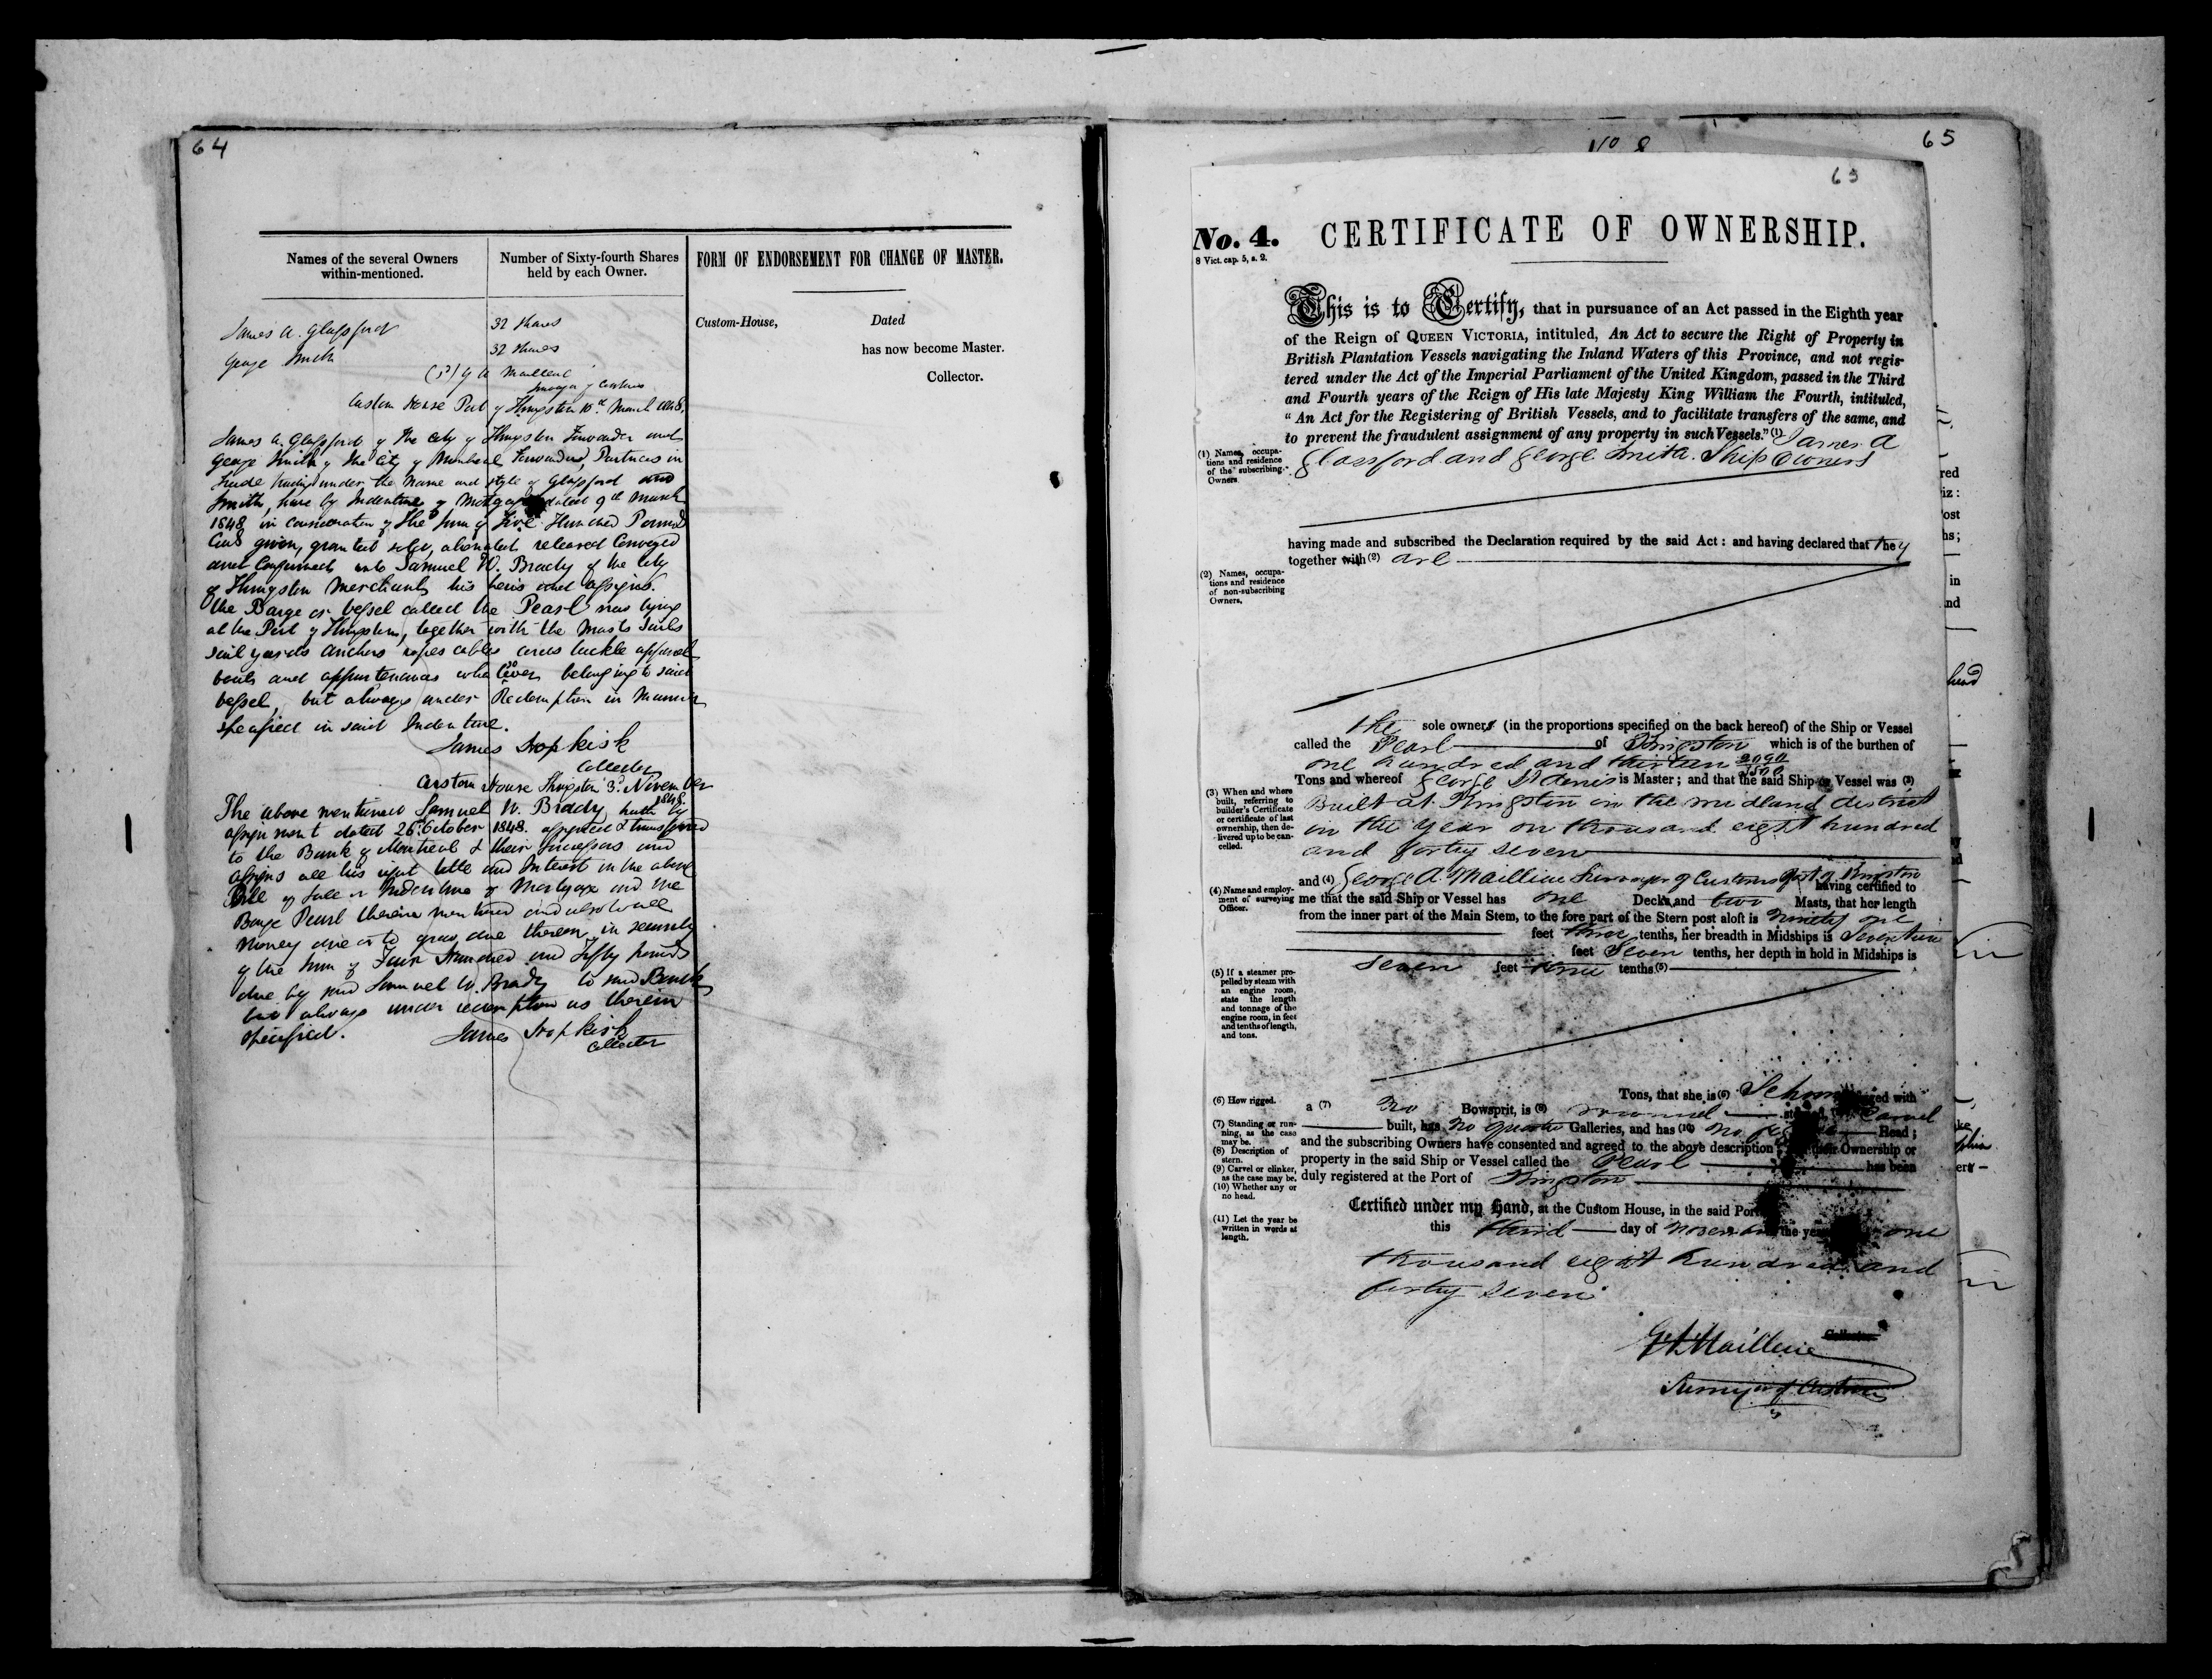 64
Names of the several Owners
within-mentioned.
Number of Sixty-fourth Shares
held by each Owner.
FORM OF ENDORSEMENT FOR CHANGE OF MASTER.
James A. Glassford 32 Shares
George Smith 32 Shares
Custom-House, Dated
has now become Master.
Collector.
Custom House Port of Kingston 10th March 1848.
James A. Glassford of the City of Kingston Forwarder and
George Smith of the City of Montreal Forwarder, Partners in
trade trading under the Name and style of Glassford and
Smith, have by Indenture of Mortgage dated 9th March
1848 in consideration of the sum of Five Hundred Pounds
given, granted sold, alienated released Conveyed
and Confirmed unto Samuel W. Brady of the City
of Kingston Merchant, his heirs and assigns.
the Barge or vessel called the Pearl now lying
at the Port of Kingston, together with the Masts Sails
sail yards anchors ropes cables cords tackle apparel
boats and appurtenances whatsoever belonging to said
vessel, but always under Redemption in Manner
specified in said Indenture.
James Hopkirk
Collector
Custom House Kingston 3d. November
1848.
The above mentioned Samuel W. Brady hath by
assignment dated 26 October 1848. assigned & transferred
to the Bank of Montreal & their successors and
assigns all his right title and Interest in the above
Bill of Sale or Indenture of Mortgage and the
Barge Pearl therein mentioned and also to all
money due or to grow due thereon, in security
of the sum of Four Hundred and Fifty pounds
due by said Samuel W. Brady to said Bank
but always under redemption as therein
specified.
James Hopkirk
Collector
65
No 8
65
No. 4. CERTIFICATE OF OWNERSHIP.
8 Vict. cap. 5, s. 2.
This is to Certify, that in pursuance of an Act passed in the Eighth year
of the Reign of QUEEN VICTORIA, intituled, An Act to secure the Right of Property in
British Plantation Vessels navigating the Inland Waters of this Province, and not regis-
tered under the Act of the Imperial Parliament of the United Kingdom, passed in the Third
and Fourth years of the Reign of His late Majesty King William the Fourth, intituled,
"An Act for the Registering of British Vessels, and to facilitate transfers of the same, and
to prevent the fraudulent assignment of any property in such Vessels." (1) James A
Glassford and George Smith. Ship Owners
(1) Names, occupa-
tions and residence
of the subscribing
Owners.
having made and subscribed the Declaration required by the said Act: and having declared that they
together with (2) are
(2) Names, occupa-
tions and residence
of non-subscribing
Owners.
the sole owners (in the proportions specified on the back hereof) of the Ship or Vessel
called the Pearl of Kingston which is of the burthen of
one hundred and thirteen 2090/3500
Tons and whereof George St Denis is Master; and that the said Ship or Vessel was (3)
Built at Kingston in the midland district
in the Year on thousand eight hundred
and forty seven
(3) When and where
built, referring to
builder's Certificate
or certificate of last
ownership, then de-
livered up to be can-
celled.
and (4) George A. Mailleue Surveyor of Customs Port of Kingston having certified to
me that the said Ship or Vessel has one Decks, and two Masts, that her length
from the inner part of the Main Stem, to the fore part of the Stern post aloft is Ninety one
feet three tenths, her breadth in Midships is Seventeen
feet Seven tenths, her depth in hold in Midships is
seven feet three tenths (5)
(4) Name and employ-
ment of surveying
Officer.
(5) If a steamer pro-
pelled by steam with
an engine room,
state the length
and tonnage of the
engine room, in feet
and tenths of length,
and tons.
Tons, that she is (6)
a (7) No Bowsprit, is (8) Carvel
built, has no quarter Galleries, and has (10) no Head;
and the subscribing Owners have consented and agreed to the above description, Ownership or
property in the said Ship or Vessel called the Pearl has been
duly registered at the Port of Kingston
(6) How rigged.
(7) Standing or run-
ning, as the case
may be.
(8) Description of
stern.
(9) Carvel or clinker,
as the case may be.
(10) Whether any or
no head.
(11) Let the year be
written in words at
length.
Certified under my Hand, at the Custom House, in the said Port
this third day of November the year one
thousand eight hundred and
forty seven
Collector
Surveyor of Customs